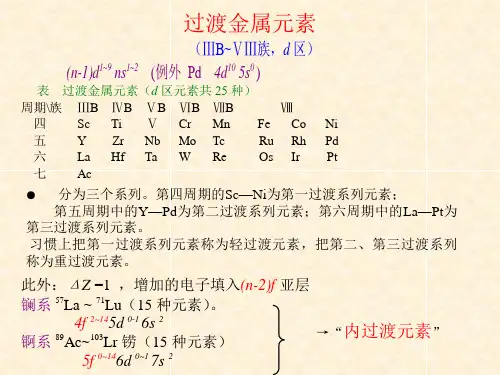 过渡金属元素
(ⅢB~ⅤⅢ族，d 区)
(n-1)d1~9 ns1~2 (例外 Pd 4d10 5s0)
表 过渡金属元素（d 区元素共 25 种）
周期\族 ⅢB ⅣB ⅤB ⅥB ⅦB Ⅷ
四 Sc Ti Ⅴ Cr Mn Fe Co Ni
五 Y Zr Nb Mo Tc Ru Rh Pd
六 La Hf Ta W Re Os Ir Pt
七 Ac
● 分为三个系列。第四周期的Sc—Ni为第一过渡系列元素；
第五周期中的Y—Pd为第二过渡系列元素；第六周期中的La—Pt为
第三过渡系列元素。
习惯上把第一过渡系列元素称为轻过渡元素，把第二、第三过渡系列
称为重过渡元素。
此外：ΔZ =1 ，增加的电子填入(n-2)f 亚层
镧系 57La ~ 71Lu（15 种元素）。
4f 2~14 5d 0-1 6s 2
锕系 89Ac~103Lr 铹（15 种元素）
5f 0~14 6d 0~1 7s 2
→ “内过渡元素”